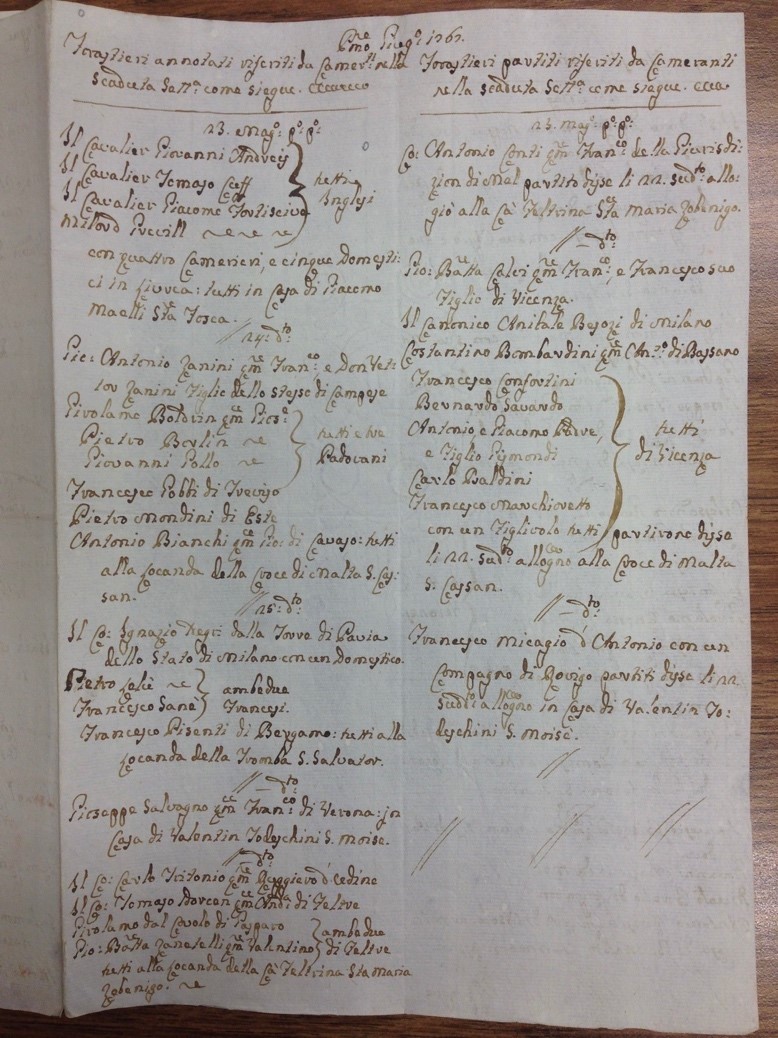 Pmo Giugo 1767.
Forastieri annotati riferiti da Camerti nella
scaduta Settna come siegue.
23. Maggo: po: po:
Il Cavalier Giovanni
Il Cavalier Tomaso
Il Cavalier Giacomo
Milord
tutti
Inglesi
con quattro Camerieri, e cinque Domesti:
ci in livrea: tutti in Casa di Giacomo
Sta Fosca.
24: dto
Gio: Antonio Zanini qm Franco, e Don Vet:
tor Zanini Figlio dello stesso di Campese
Girolamo qm Gios:
Pietro
Giovanni Pollo
tutti e tre
Padovani
Francesco di Treviso
Pietro Mondini di Este
Antonio Bianchi qm Gio: di Cavaso: tutti
alla Locanda della Croce di Malta S. Cas:
san.
25: dto
Il Co: Ignazio Negri dalla Torre di Pavia
dello Stato di Milano con un Domestico.
Pietro
Francesco Sanè
ambedue
Francesi.
Francesco Pisenti di Bergamo: tutti alla
Locanda della Tromba S. Salvator.
dto
Gioseppe Salvagno qm Franco: di Verona: in
Casa di Valentin Todeschini S. Moisè.
dto
Il Co: Carlo Tritonio qm Ruggiero d'Udine
Il Co: Tomaso qm di Feltre
Girolamo dal Covolo di
Gio: Batta Zanetelli qm Valentino
ambedue
di Feltre
tutti alla Locanda della Cà Feltrina Sta Maria
Zobenigo.
Forastieri partiti riferiti da Cameranti
nella scaduta Settna come siegue.
23. Maggo: po: po:
Co: Antonio Conti qm Franco della Giurisdi:
zion di Mel partito disse li 22. sudto allo:
giò alla Cà Feltrina Sta Maria Zobenigo.
dto
Gio: Batta Calvi qm Franco, e Francesco suo
Figlio di Vicenza.
Il Canonico Anibale Besozi di Milano
Costantino Bombardini qm Anto: di Bassano
Francesco Confortini
Bernardo
Antonio e Giacomo
e Figlio
Carlo Baldini
Francesco Marchioretto
con un Figliolo tutti
tutti
di Vicenza
partirono disse
li 22. sudto allogno alla Croce di Malta
S. Cassan.
dto
Francesco Micagio d'Antonio con un
Compagno di Rovigo partiti disse li 22
sudto allogno in Casa di Valentin To:
deschini S. Moisè.